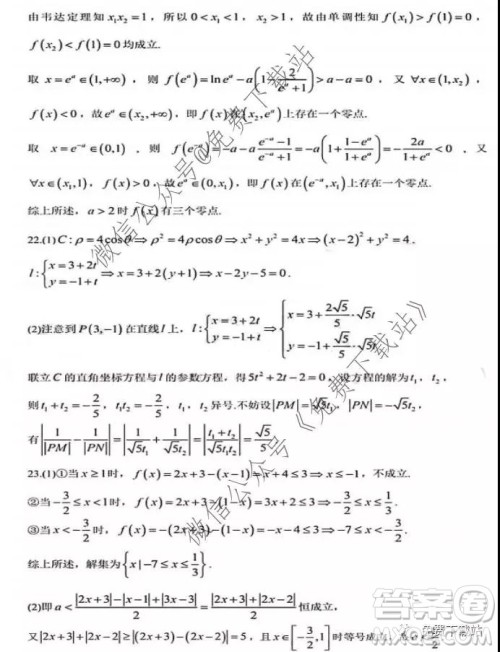 由韦达定理知 x₁x₂=1，所以 0<x₁<1，x₂>1，故由单调性知 f(x₁)>f(1)=0，
f(x₂)<f(1)=0均成立.
取 x=eᵃ∈(1,+∞)，则 f(eᵃ)=ln eᵃ-a(1-2/(eᵃ+1))>a-a=0，又 ∀x∈(1,x₂)，
f(x)<0，故eᵃ∈(x₂,+∞)，即f(x)在(x₂,eᵃ)上存在一个零点.
取 x=e⁻ᵃ∈(0,1)，则 f(e⁻ᵃ)=-a-a(e⁻ᵃ-1)/(e⁻ᵃ+1)=-a(1+(1-eᵃ)/(1+eᵃ))=-2a/(1+eᵃ)<0，又
∀x∈(x₁,1)，f(x)>0，故e⁻ᵃ∈(0,x₁)，即f(x)在(e⁻ᵃ,x₁)上存在一个零点.
综上所述，a>2时f(x)有三个零点.
22.(1)C:ρ=4cosθ⇒ρ²=4ρcosθ⇒x²+y²=4x⇒(x-2)²+y²=4.
l:{x=3+2t, y=-1+t⇒x=3+2(y+1)⇒x-2y-5=0.
(2)注意到P(3,-1)在直线l上，l:{x=3+2t, y=-1+t⇒{x=3+(2√5/5)·√5t, y=-1+(√5/5)·√5t
联立C的直角坐标方程与l的参数方程，得5t²+2t-2=0，设方程的解为t₁，t₂，
则t₁+t₂=-2/5，t₁t₂=-2/5，t₁，t₂异号.不妨设|PM|=|√5t₁|，|PN|=-√5t₂，
有|1/|PM|-1/|PN||=|1/(√5t₁)+1/(√5t₂)|=|(t₁+t₂)/(√5t₁t₂)|=√5/5.
23.(1)①当x≥1时，f(x)=2x+3-(x-1)=x+4≤3⇒x≤-1，不成立.
②当-3/2≤x<1时，f(x)=2x+3-(1-x)=3x+2≤3⇒-3/2≤x≤1/3.
③当x<-3/2时，f(x)=-(2x+3)-(1-x)=-x-4≤3⇒-7≤x<-3/2.
综上所述，解集为{x|-7≤x≤1/3}.
(2)即a<(|2x+3|-|x-1|+|3x-3|)/2=(|2x+3|+|2x-2|)/2恒成立，
又|2x+3|+|2x-2|≥|(2x+3)-(2x-2)|=5，且x∈[-3/2,1]时等号成立，
微信公众号@免费下载站
微信公众号《免费下载站》
免费下载站
答案圈